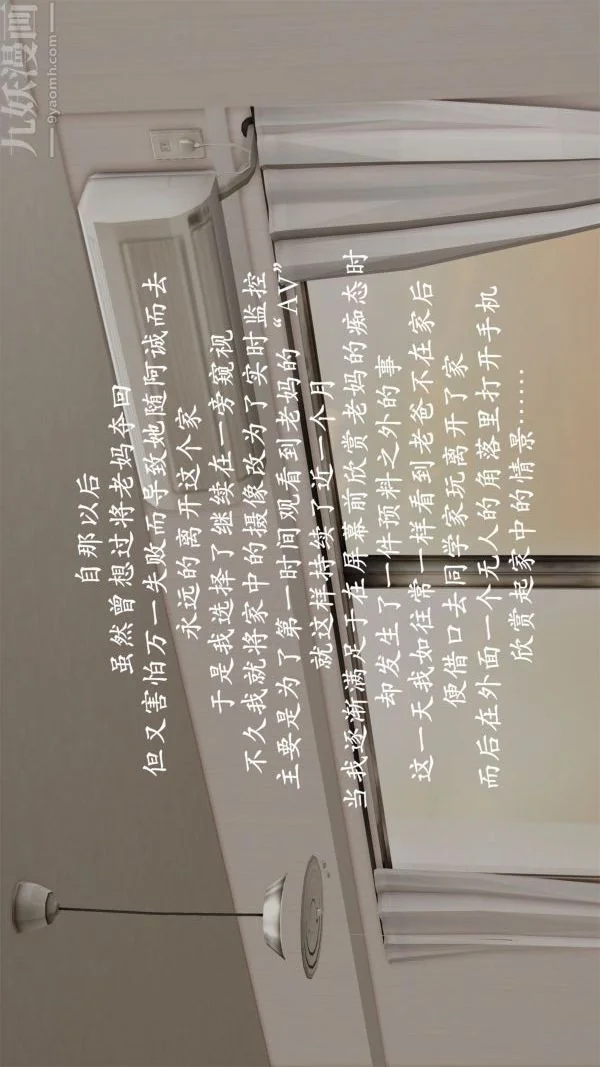 九妖漫画
9yaomh.com
自那以后
虽然曾想过将老妈夺回
但又害怕万一失败而导致她随阿诚而去
永远的离开这个家
于是我选择了继续在一旁窥视
不久我就将家中的摄像改为了实时监控
主要是为了第一时间观看到老妈的“AV”
就这样持续了近一个月
当我逐渐满足于在屏幕前欣赏老妈的痴态时
却发生了一件预料之外的事
这一天我如往常一样看到老爸不在家后
便借口去同学家玩离开了家
而后在外面一个无人的角落里打开手机
欣赏起家中的情景......